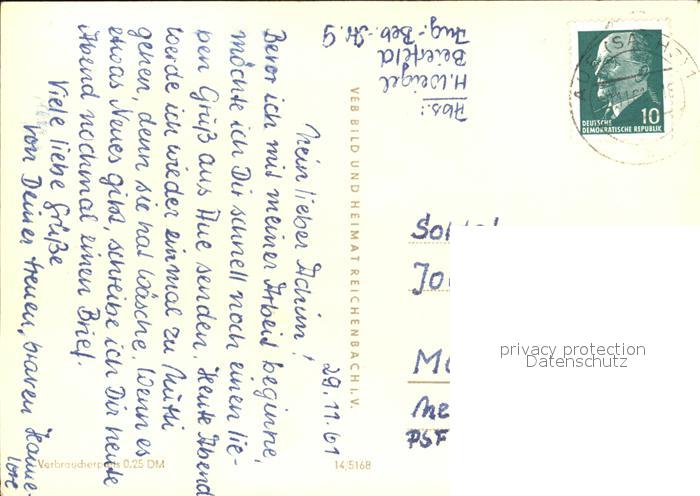 29.11.61
Mein lieber Achim!
Bevor ich mit meiner Arbeit beginne,
möchte ich Dir schnell noch einen lie-
pen Gruß aus Aue senden. Heute Abend
werde ich wieder einmal zu Mutti
gehen, denn sie hat Wäsche. Wenn es
etwas Neues gibt, schreibe ich Dir heute
Abend nochmal einen Brief.
Viele liebe Grüße
von Deiner treuen, braven Hanne-
lore
Abs.:
H. Weigel
Beierfeld
Aug.-Beb.-Str. 9
VEB BILD UND HEIMAT REICHENBACH I.V.
10
DEUTSCHE
DEMOKRATISCHE REPUBLIK
PSF
privacy protection
Datenschutz
Verbraucherpreis 0,25 DM
14/5168